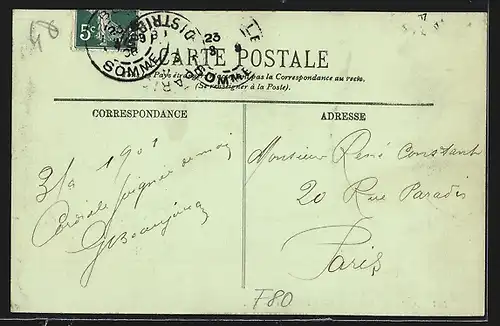 48
5c
DISTRIB
23
8
9
SOMME
SOMME
CARTE POSTALE
Pays étrangers pas la Correspondance au recto.
(Se renseigner à la Poste).
CORRESPONDANCE
ADRESSE
1901
Cordiale poignée de main
Monsieur René Constant
20 Rue Paradis
Paris
F80